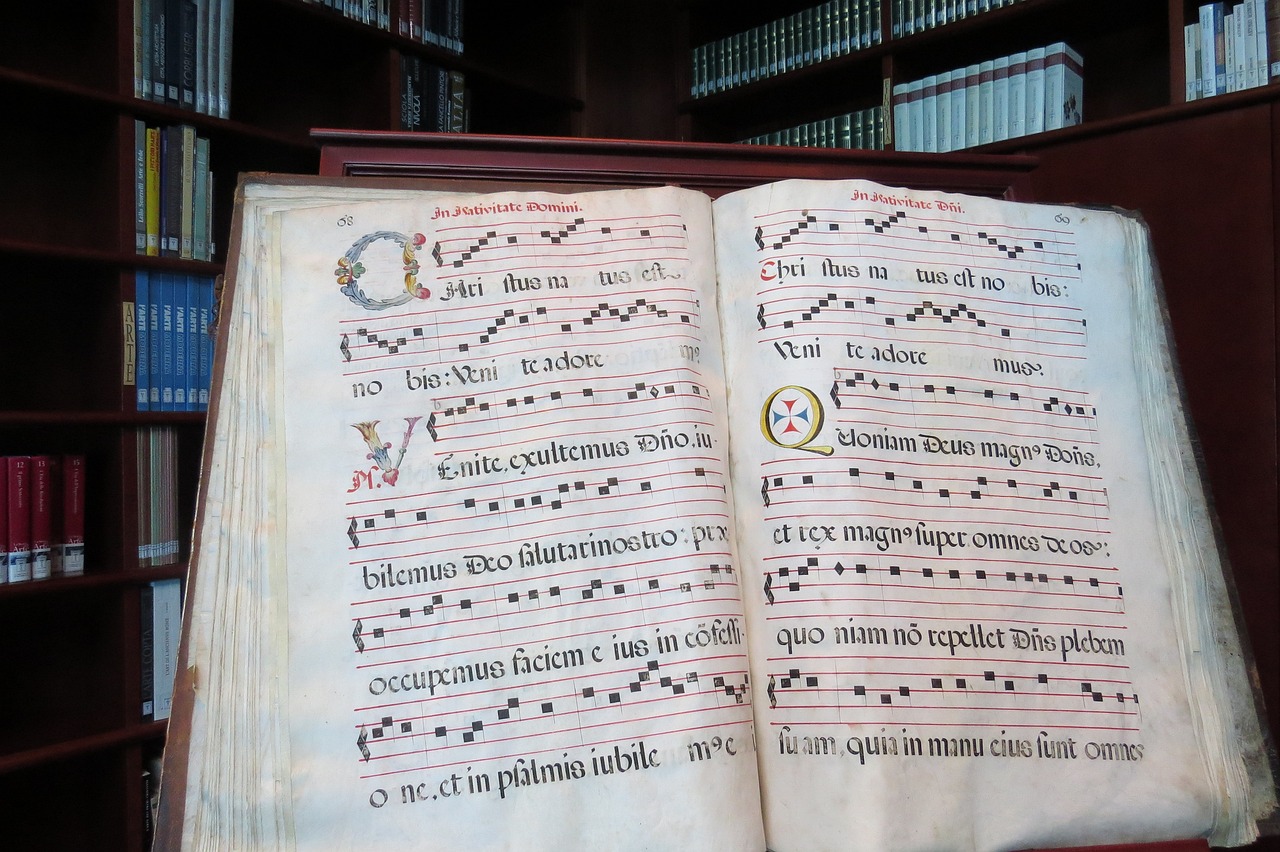 68
In Nativitate Domini.
CHri stus na tus est
no bis: Veni te adore m⁹
Ps. VEnite, exultemus Dño, iu-
bilemus Deo salutarinostro: præ
occupemus faciem e ius in cõfessi-
o ne, et in psalmis iubile m⁹ e
69
In Nativitate Dñi.
Chri stus na tus est no bis:
Veni te adore mus.
Quoniam Deus magn⁹ Doñs,
et rex magn⁹ super omnes deos:
quo niam nõ repellet Dñs plebem
su am, quia in manu eius sunt omnes
ARTE
L'ARTE
L'ARTE
L'ARTE
L'ARTE
L'ARTE
L'ARTE